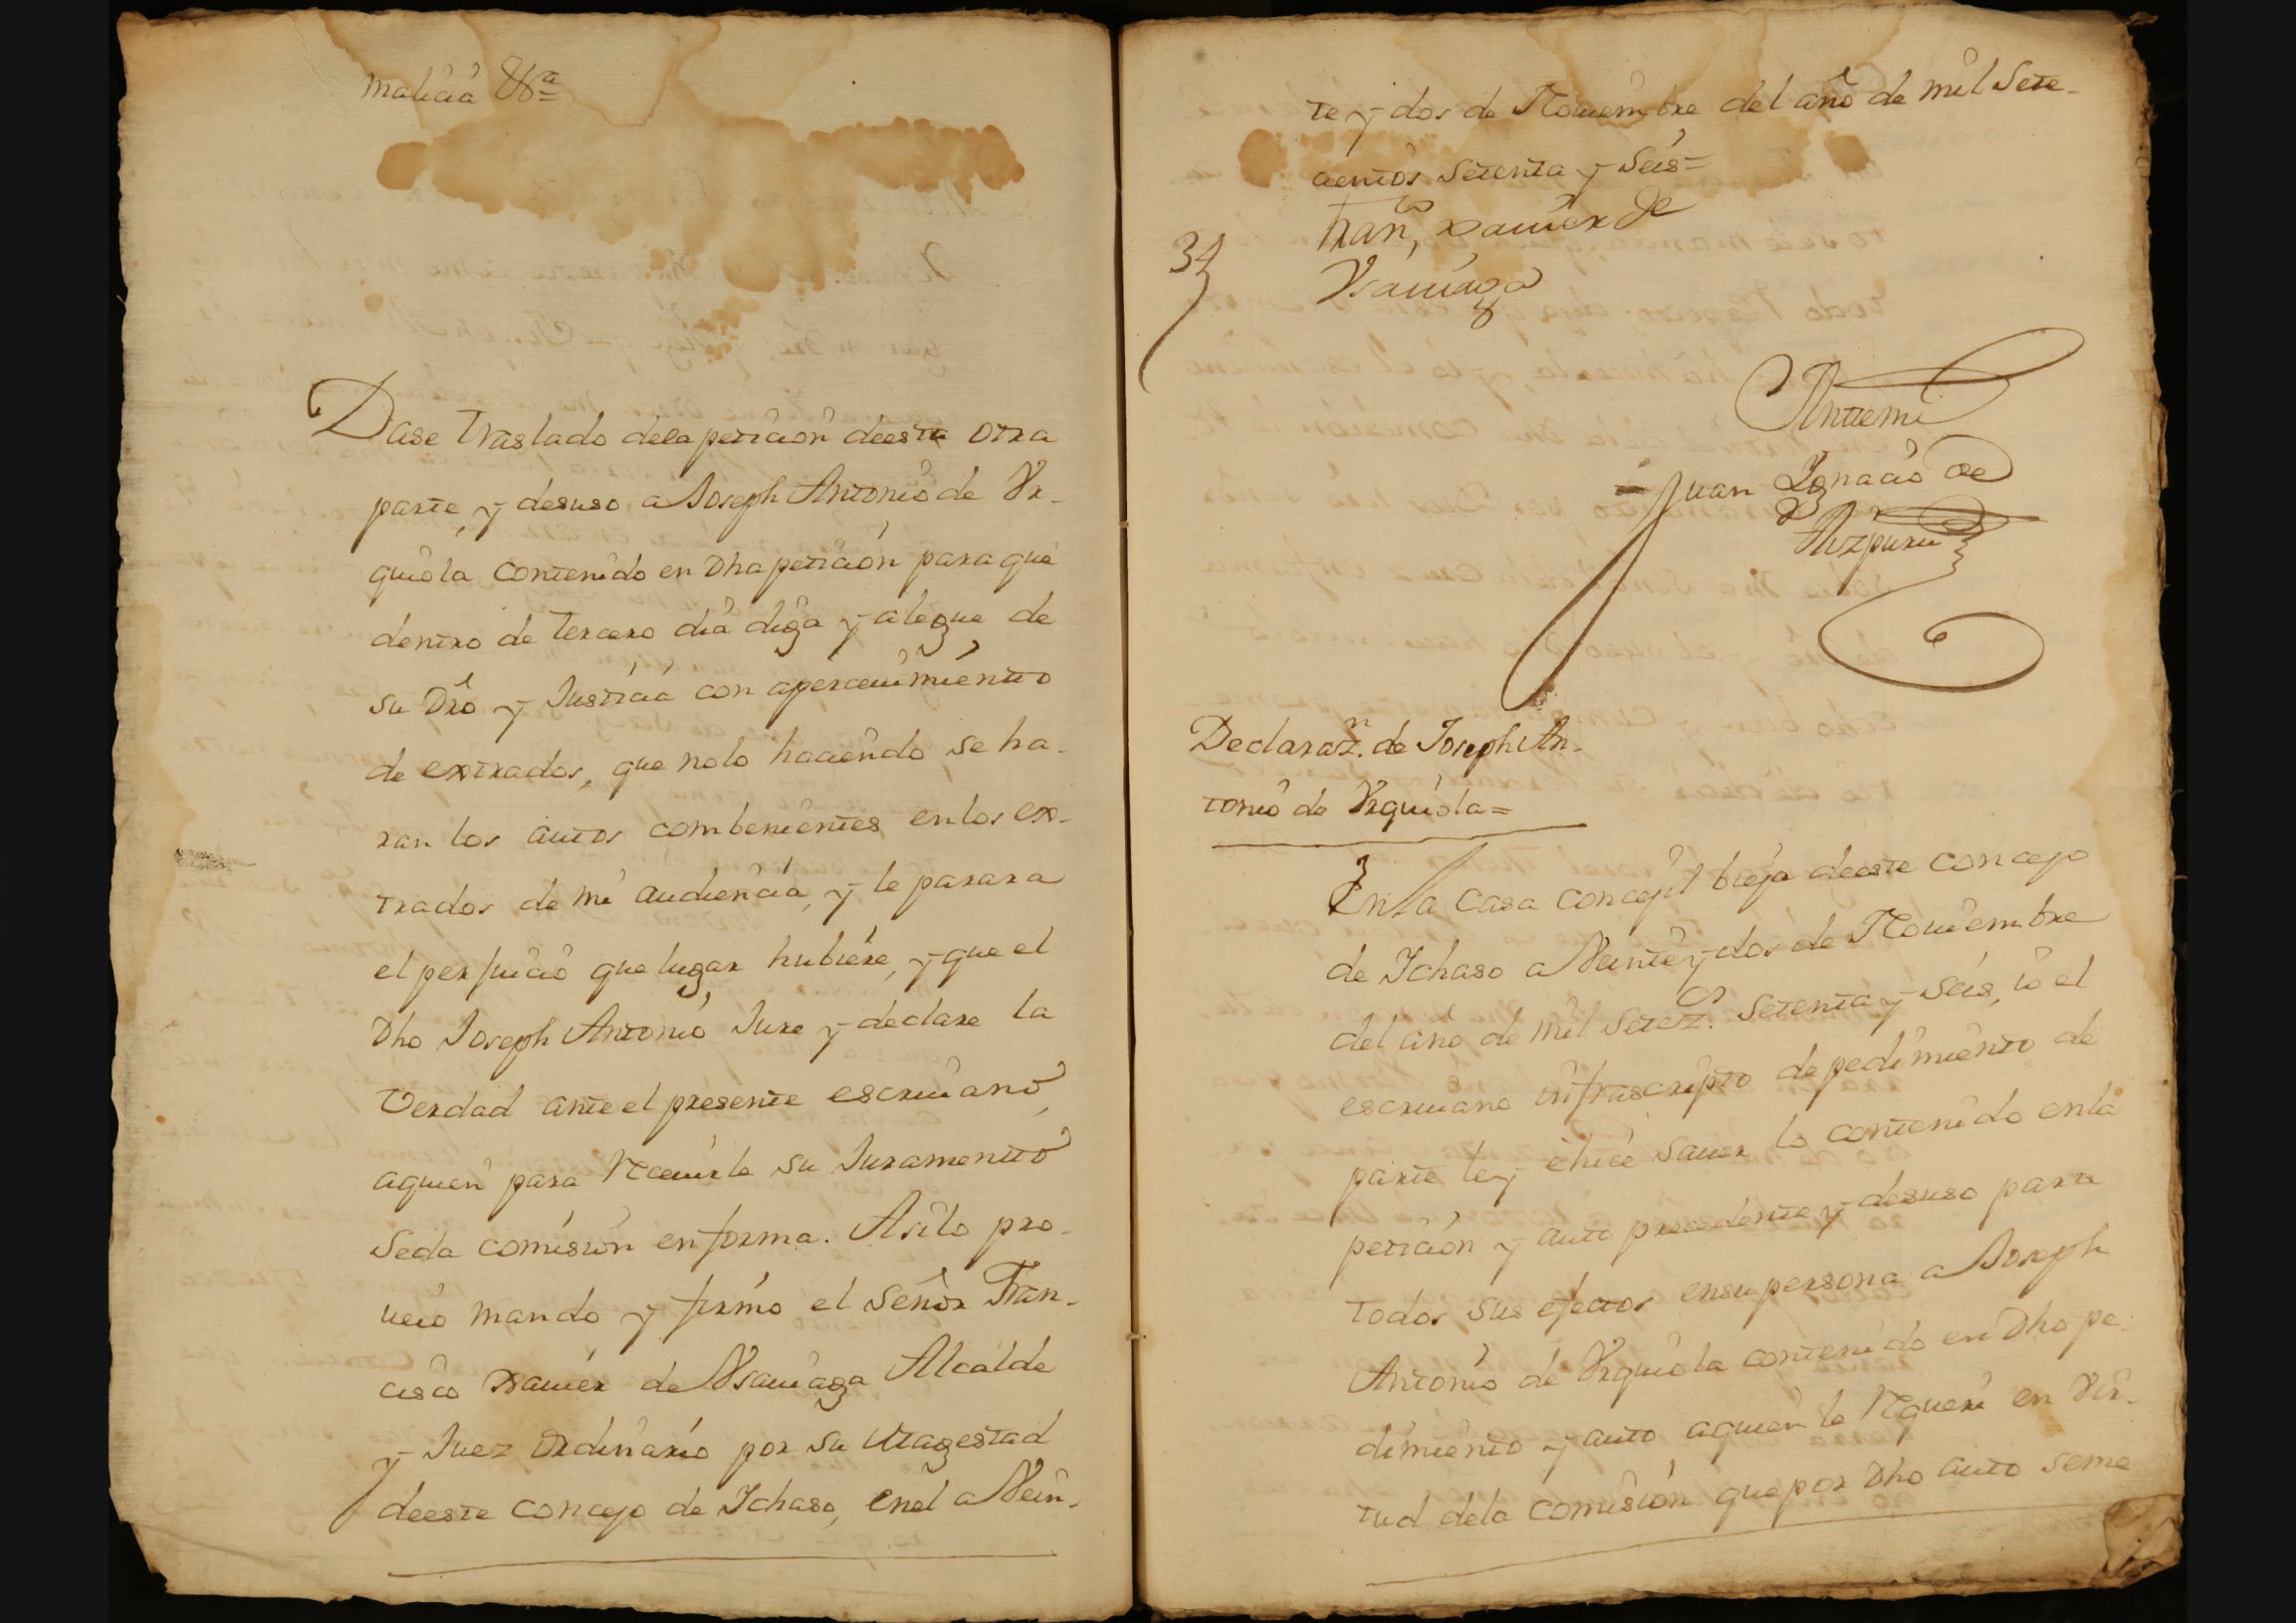 malicia &ra=
Dase traslado dela peticion deesta otra
parte, y desuso a Joseph Antonio de Vr-
quiola contenido en Dha peticion para que
dentro de tercero dia diga y alegue de
su Dro y Justicia con apercevimiento
de extrados, que nolo haciendo se ha-
ran los autos combenientes enlos ex-
trados de mi audiencia, y le parara
el perjuicio que lugar hubiere, y que el
Dho Joseph Antonio Jure y declare la
Verdad anteel presente escrivano,
aquien para Recevirle su Juramento
Seda comision enforma. Asilo pro-
veio mando y firmo el Señor Fran-
cisco Xavier de Vsaviaga Alcalde
y Juez Ordinario por su Magestad
deeste concejo de Ichaso, enel a Vein-
te y dos de Noviembre del año de mil Sete-
cientos Setenta y Seis=
Franco, Xavier de
Vsaviaga
34
Antemi
Juan Ignacio de
Aizpuru
Declarazn. de Joseph An-
tonio de Vrquiola=
En la Casa concejil bieja deeste concejo
de Ichaso a Veinte y dos de Noviembre
del año de mil Setezs. Setenta y Seis, io el
escrivano infrascripto de pedimiento de
parte ley, e hice saver lo contenido enla
peticion y auto precedente y desuso para
todos sus efectos ensupersona a Joseph
Antonio de Vrquiola contenido en Dho pe-
dimiento y auto aquien le Requeri en Vir-
tud dela comision que por Dho auto seme